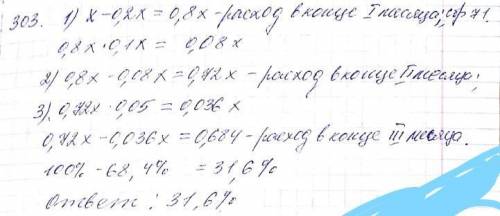 303. 1) x - 0,2x = 0,8x - расход в конце I месяца; стр 71
0,8x · 0,1x = 0,08x
2) 0,8x - 0,08x = 0,72x - расход в конце II месяца;
3) 0,72x · 0,05 = 0,036x
0,72x - 0,036x = 0,684 - расход в конце III месяца.
100% - 68,4% = 31,6%
Ответ: 31,6%